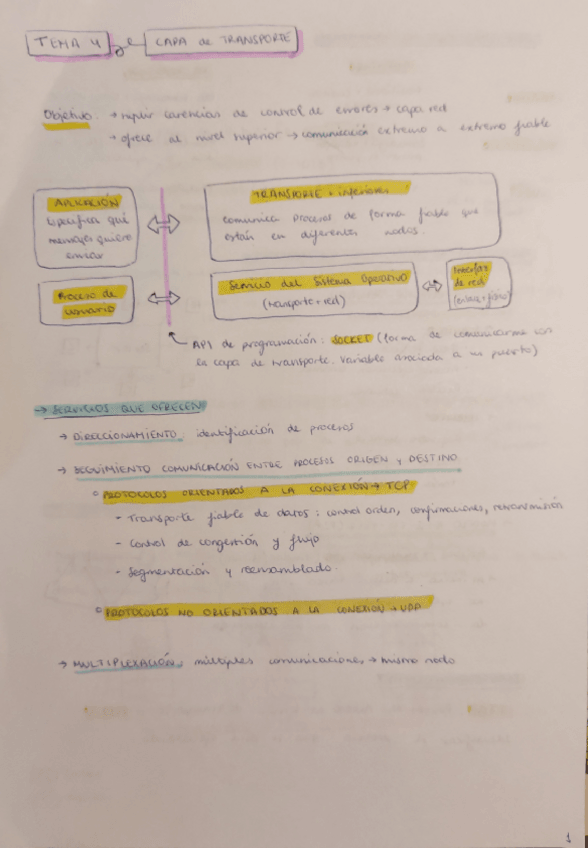 TEMA 4 CAPA de TRANSPORTE
Objetivo → suplir carencias de control de errores → capa red
→ ofrece al nivel superior → comunicación extremo a extremo fiable
APLICACIÓN
Especifica qué
mensajes quiero
enviar
TRANSPORTE + inferiores
comunica procesos de forma fiable que
están en diferentes nodos.
Proceso de
usuario
Servicio del Sistema Operativo
(transporte + red)
Interfaz
de red
(enlace + físico)
API de programación: SOCKET (forma de comunicarme con
la capa de transporte. Variable asociada a un puerto)
→ SERVICIOS QUE OFRECEN
→ DIRECCIONAMIENTO: identificación de procesos
→ SEGUIMIENTO COMUNICACIÓN ENTRE PROCESOS ORIGEN y DESTINO.
○ PROTOCOLOS ORIENTADOS A LA CONEXIÓN → TCP
- Transporte fiable de datos: control orden, confirmaciones, retransmisión
- Control de congestión y flujo
- Segmentación y reensamblado.
○ PROTOCOLOS NO ORIENTADOS A LA CONEXIÓN → UDP
→ MULTIPLEXACIÓN: múltiples comunicaciones → mismo nodo
1